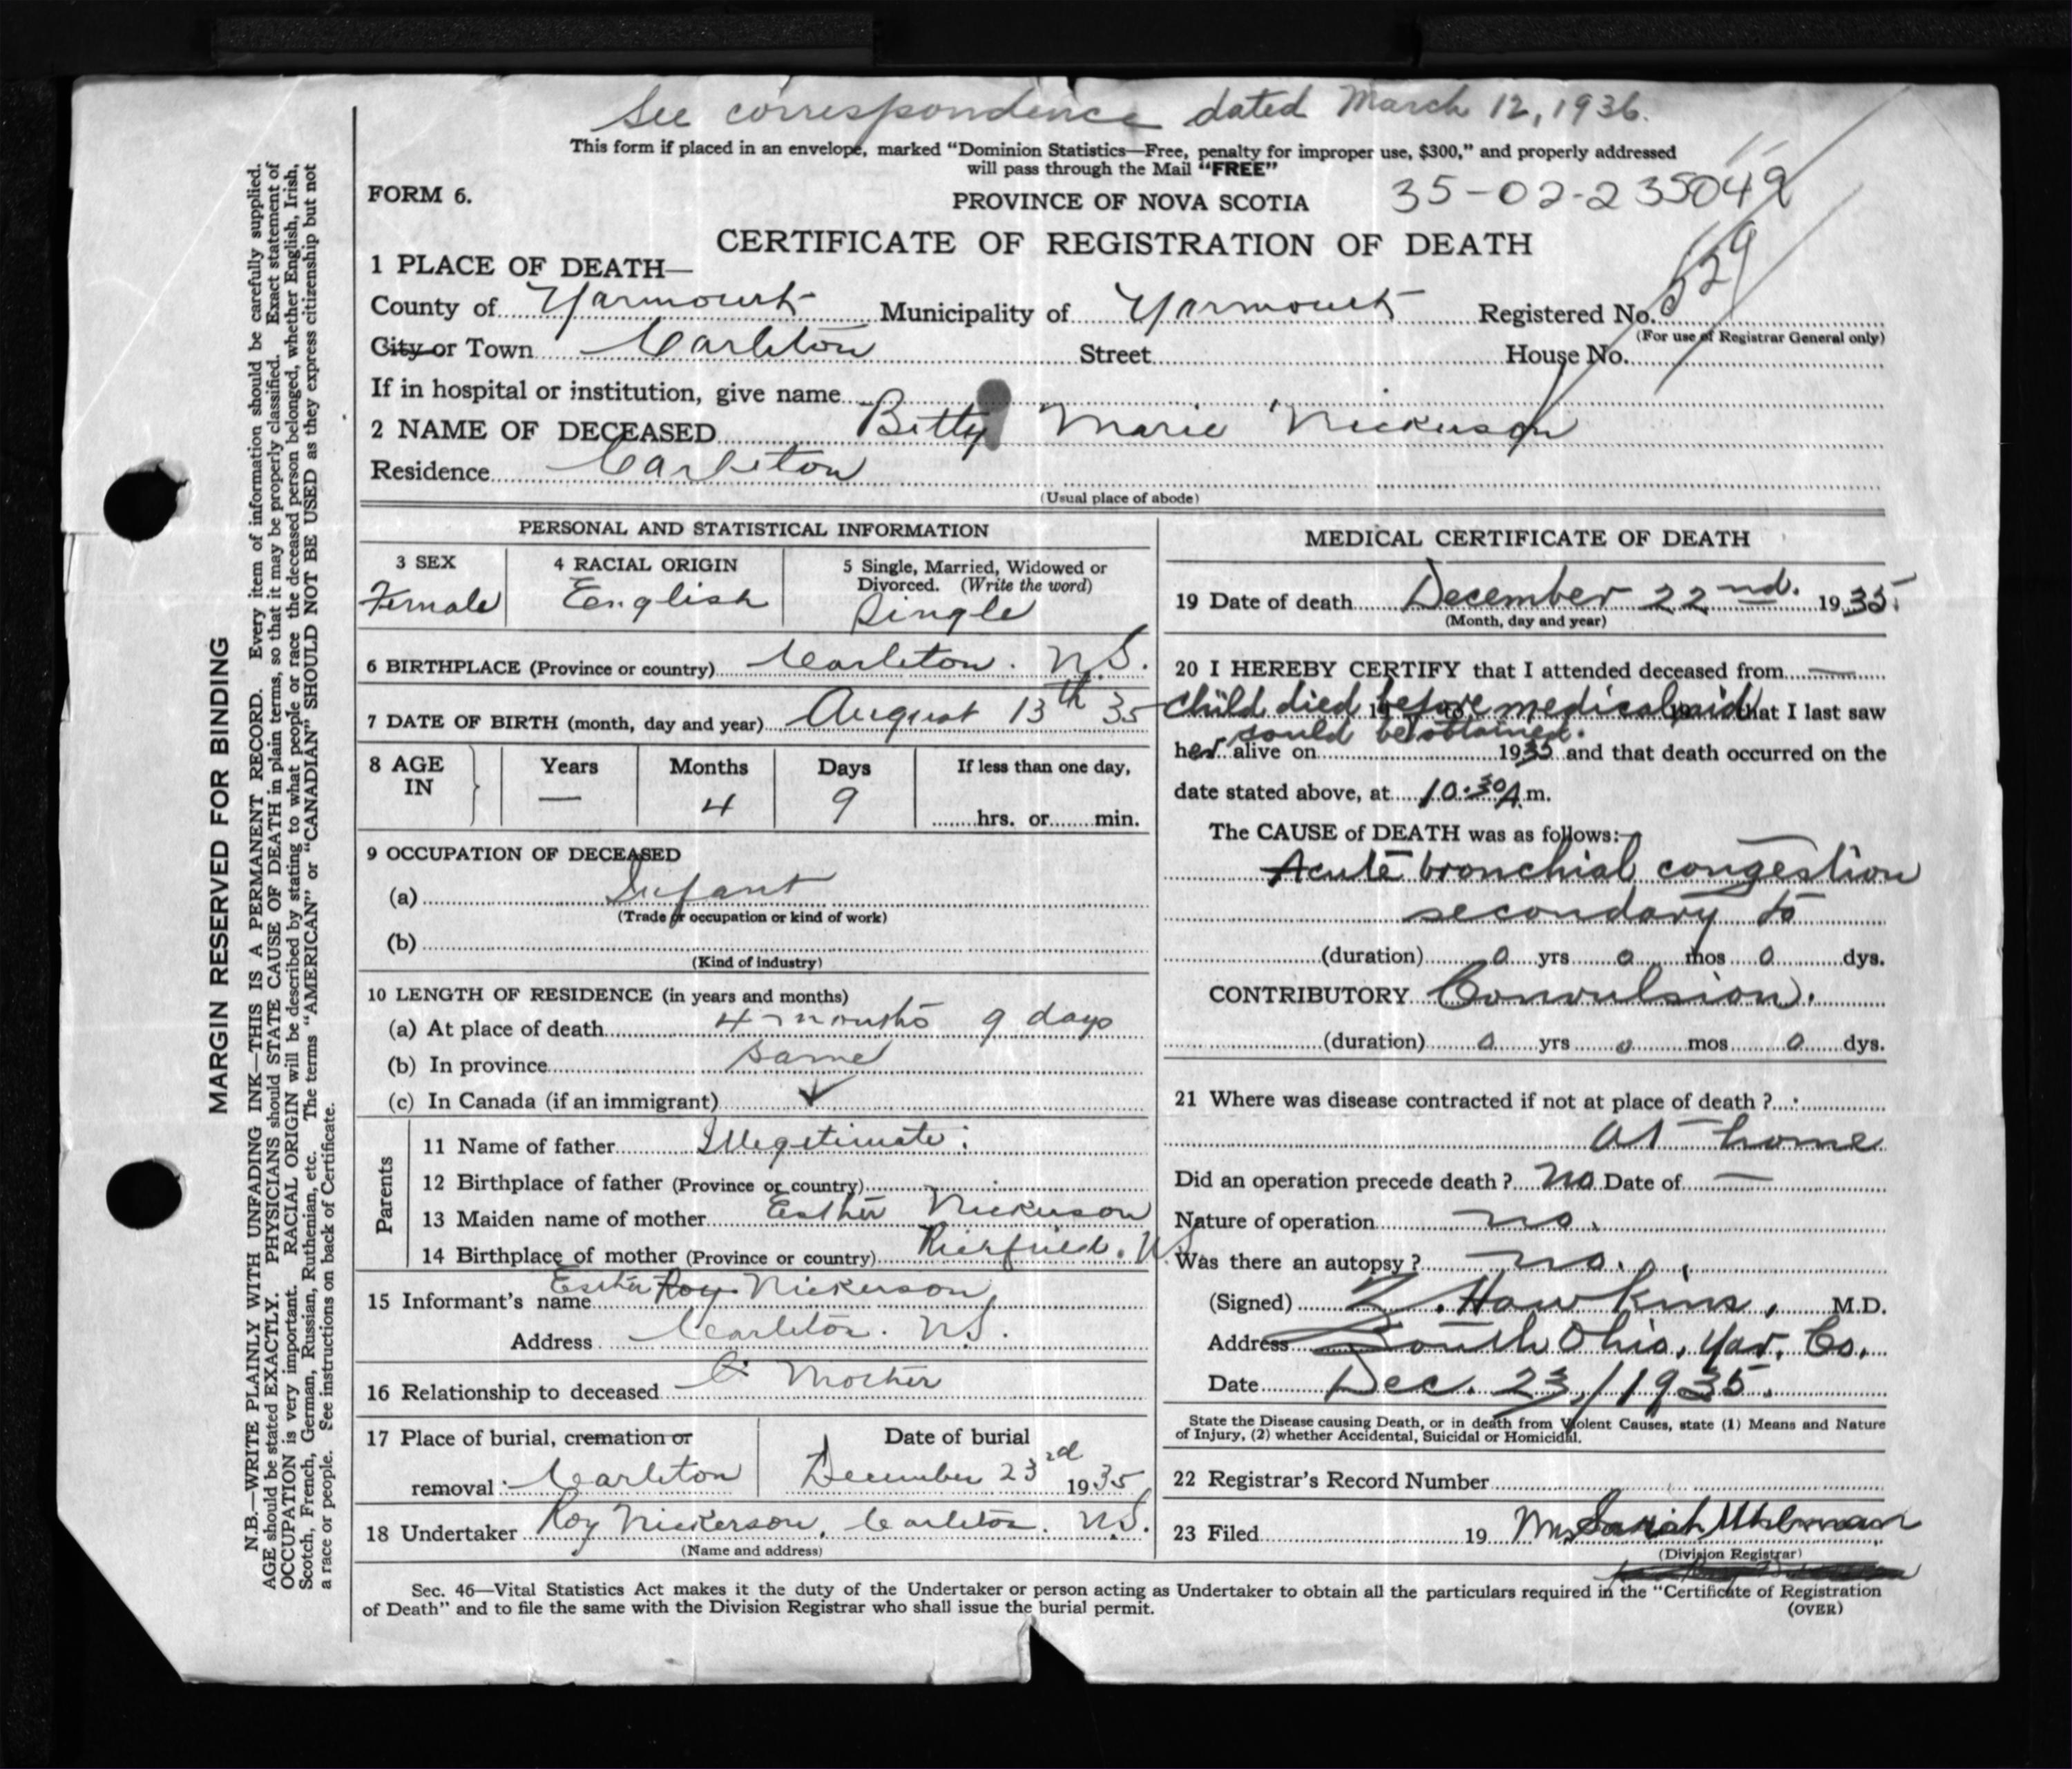 See correspondence dated March 12, 1936.
This form if placed in an envelope, marked "Dominion Statistics—Free, penalty for improper use, $300," and properly addressed
will pass through the Mail "FREE"
FORM 6.
PROVINCE OF NOVA SCOTIA 35-02-235049
CERTIFICATE OF REGISTRATION OF DEATH
1 PLACE OF DEATH—
County of Yarmouth Municipality of Yarmouth Registered No. 529
(For use of Registrar General only)
City or Town Carleton Street House No.
If in hospital or institution, give name
2 NAME OF DECEASED Betty Marie Nickerson
Residence Carleton
(Usual place of abode)
PERSONAL AND STATISTICAL INFORMATION
3 SEX 4 RACIAL ORIGIN 5 Single, Married, Widowed or
Divorced. (Write the word)
Female English Single
6 BIRTHPLACE (Province or country) Carleton. N.S.
7 DATE OF BIRTH (month, day and year) August 13th 35
8 AGE IN Years Months Days If less than one day,
— 4 9 hrs. or min.
9 OCCUPATION OF DECEASED
(a) Infant
(Trade or occupation or kind of work)
(b)
(Kind of industry)
10 LENGTH OF RESIDENCE (in years and months)
(a) At place of death 4 months 9 days
(b) In province same
(c) In Canada (if an immigrant) ✓
Parents
11 Name of father Illegetimate.
12 Birthplace of father (Province or country)
13 Maiden name of mother Esther Nickerson
14 Birthplace of mother (Province or country) Richfield. N.S.
15 Informant's name Esther Roy Nickerson
Address Carleton. N.S.
16 Relationship to deceased Mother
17 Place of burial, cremation or Date of burial
removal Carleton December 23rd 1935
18 Undertaker Roy Nickerson, Carleton. N.S.
(Name and address)
MEDICAL CERTIFICATE OF DEATH
19 Date of death December 22nd. 1935.
(Month, day and year)
20 I HEREBY CERTIFY that I attended deceased from —
child died before medical aid that I last saw
could be obtained.
her alive on 1935 and that death occurred on the
date stated above, at 10.30 A.m.
The CAUSE of DEATH was as follows:—
Acute bronchial congestion
secondary to
(duration) 0 yrs 0 mos 0 dys.
CONTRIBUTORY Convulsion.
(duration) 0 yrs 0 mos 0 dys.
21 Where was disease contracted if not at place of death?
at home
Did an operation precede death? no Date of —
Nature of operation no.
Was there an autopsy? no.
(Signed) Hawkins, M.D.
Address South Ohio, Yar. Co.
Date Dec. 23/1935.
State the Disease causing Death, or in death from Violent Causes, state (1) Means and Nature
of Injury, (2) whether Accidental, Suicidal or Homicidal.
22 Registrar's Record Number
23 Filed 19 Mrs Sarah Uhlman
(Division Registrar)
Sec. 46—Vital Statistics Act makes it the duty of the Undertaker or person acting as Undertaker to obtain all the particulars required in the "Certificate of Registration
of Death" and to file the same with the Division Registrar who shall issue the burial permit.
(OVER)
MARGIN RESERVED FOR BINDING
N.B.—WRITE PLAINLY WITH UNFADING INK—THIS IS A PERMANENT RECORD. Every item of information should be carefully supplied.
AGE should be stated EXACTLY. PHYSICIANS should STATE CAUSE OF DEATH in plain terms, so that it may be properly classified. Exact statement of
OCCUPATION is very important. RACIAL ORIGIN will be described by stating to what people or race the deceased person belonged, whether English, Irish,
Scotch, French, German, Russian, Ruthenian, etc. The terms "AMERICAN" or "CANADIAN" SHOULD NOT BE USED as they express citizenship but not
a race or people. See instructions on back of Certificate.